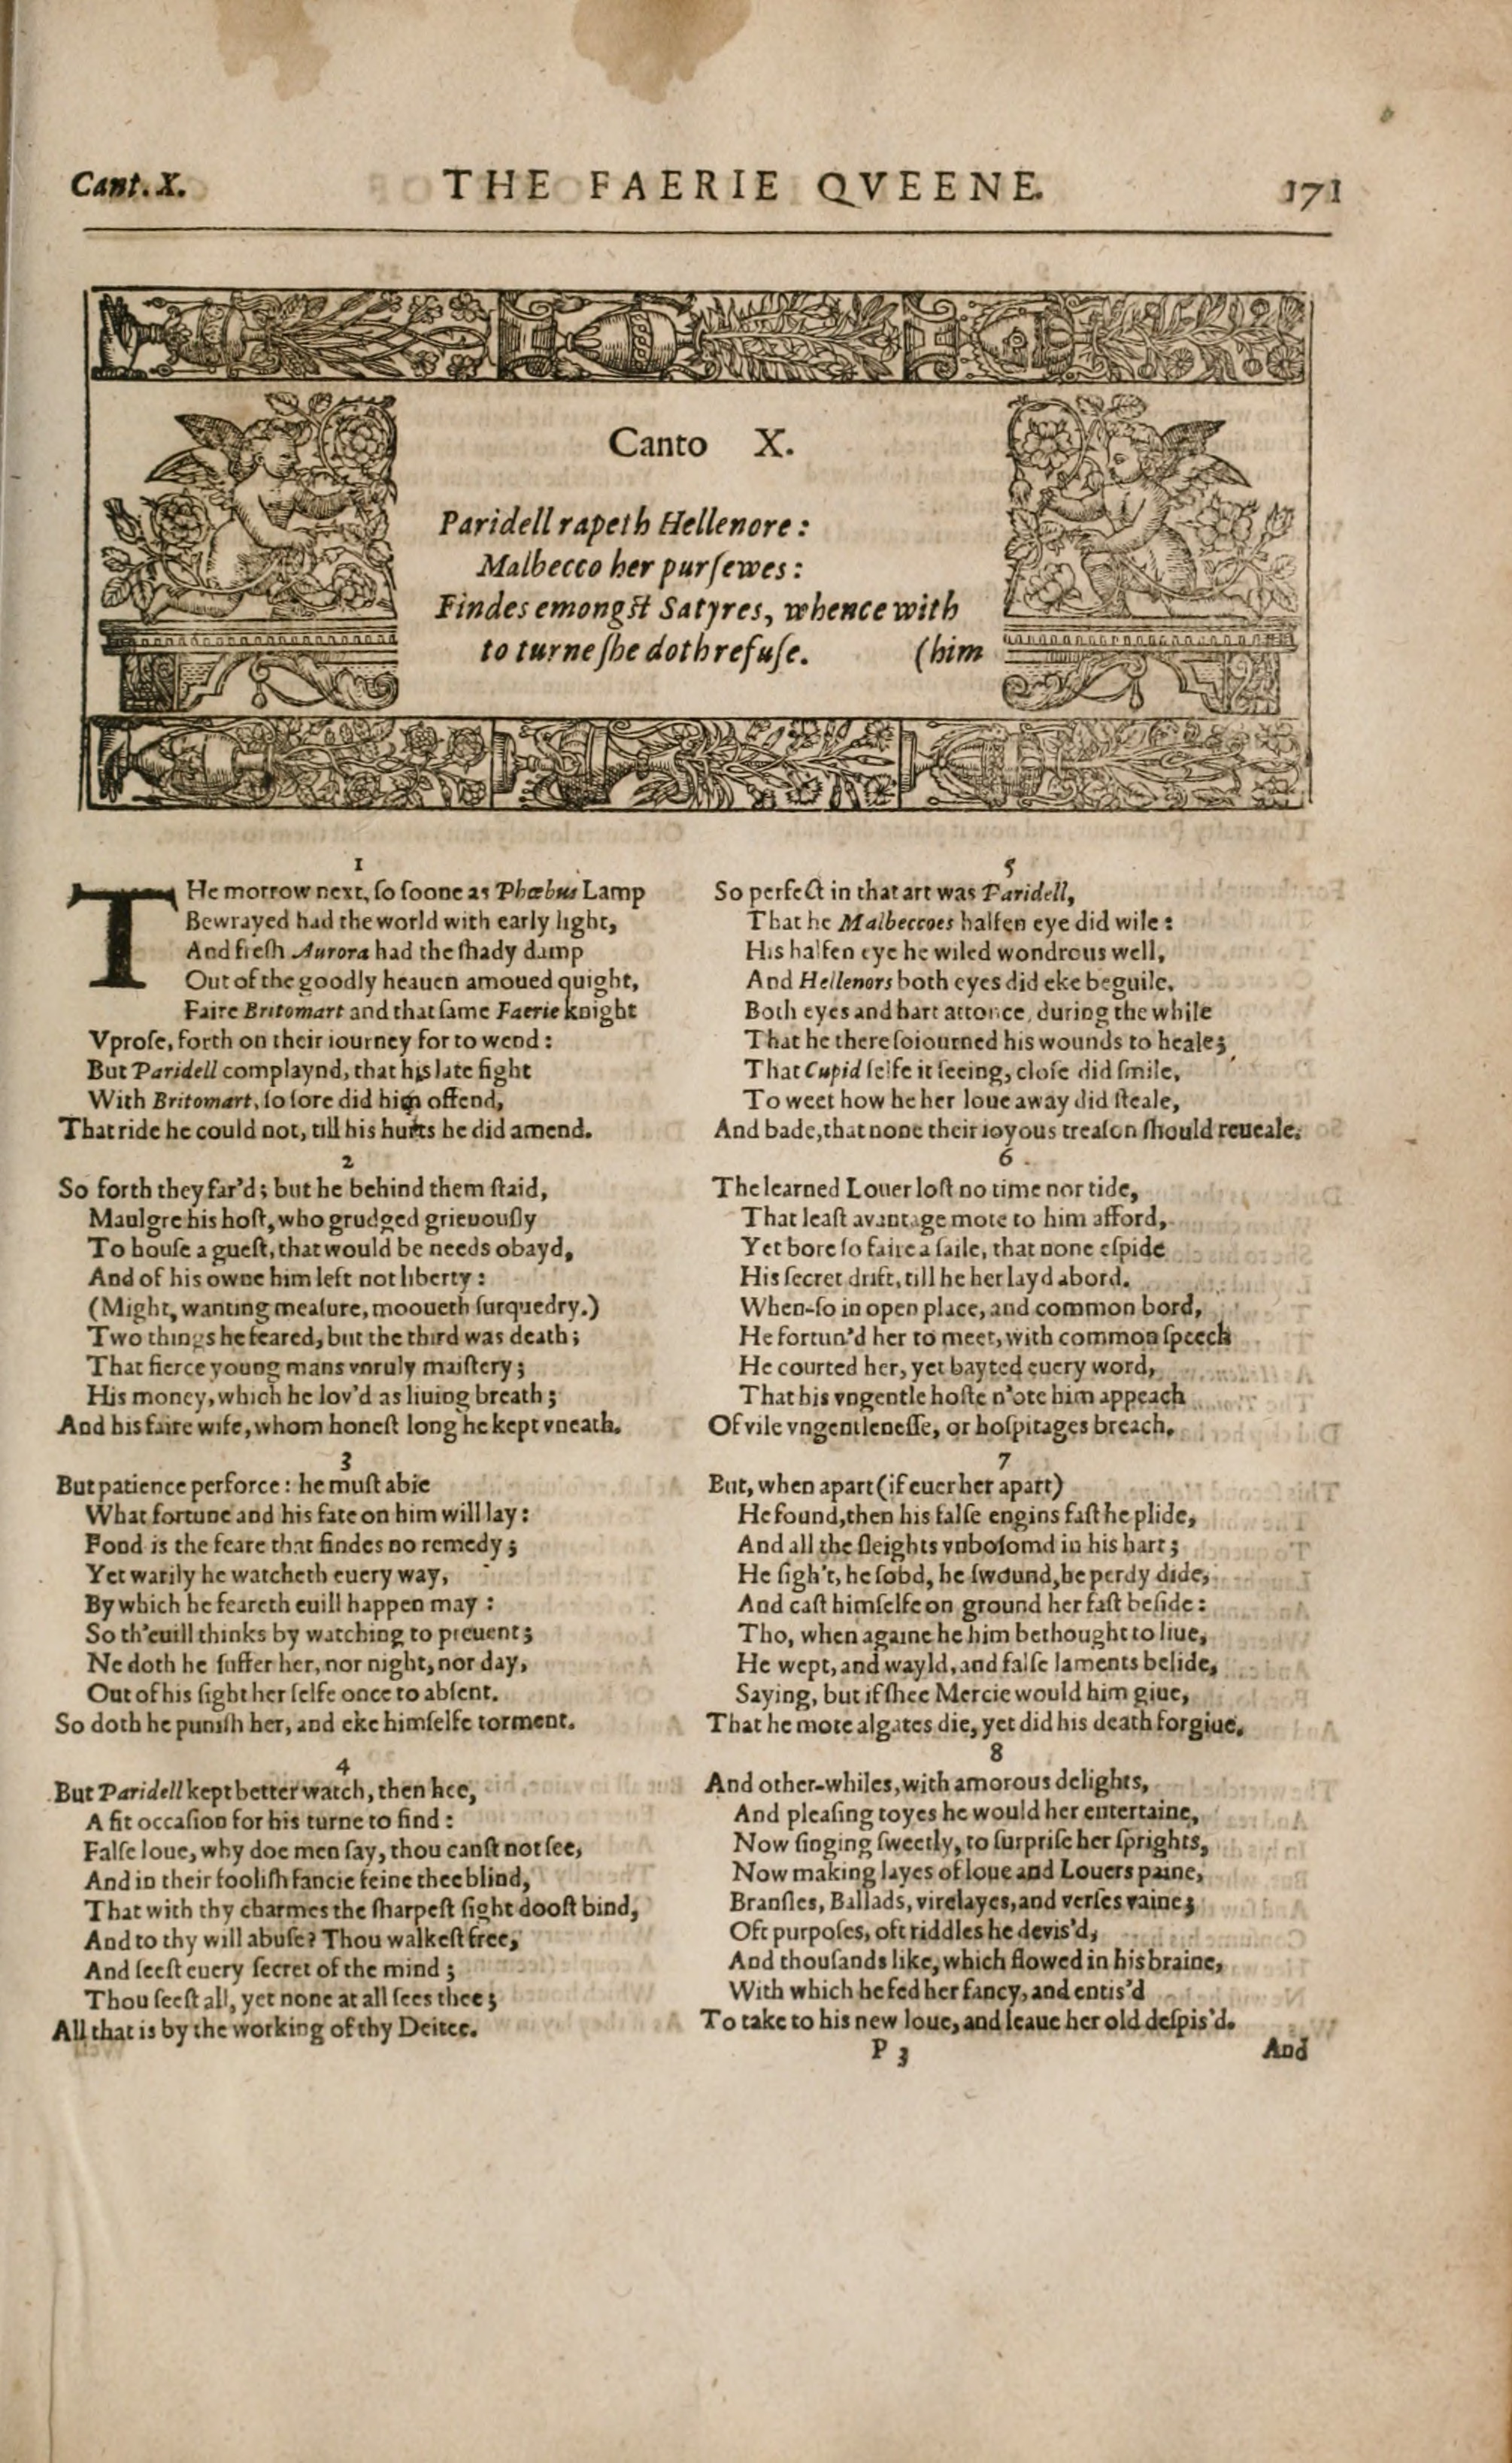 Cant. X.
THE FAERIE QVEENE.
171
Canto X.
Paridell rapeth Hellenore:
Malbecco her purſewes:
Findes emongſt Satyres, whence with
to turne ſhe doth refuſe. (him
1
THe morrow next, ſo ſoone as Phœbus Lamp
Bewrayed had the world with early light,
And freſh Aurora had the ſhady damp
Out of the goodly heauen amoued quight,
Faire Britomart and that ſame Faerie knight
Vproſe, forth on their iourney for to wend:
But Paridell complaynd, that his late fight
With Britomart, ſo ſore did him offend,
That ride he could not, till his hurts he did amend.
2
So forth they far'd; but he behind them ſtaid,
Maulgre his hoſt, who grudged grieuouſly
To houſe a gueſt, that would be needs obayd,
And of his owne him left not liberty:
(Might, wanting meaſure, mooueth ſurquedry.)
Two things he feared, but the third was death;
That fierce young mans vnruly maiſtery;
His money, which he lov'd as liuing breath;
And his faire wife, whom honeſt long he kept vneath.
3
But patience perforce: he muſt abie
What fortune and his fate on him will lay:
Fond is the feare that findes no remedy;
Yet warily he watcheth euery way,
By which he feareth euill happen may:
So th'euill thinks by watching to preuent;
Ne doth he ſuffer her, nor night, nor day,
Out of his ſight her ſelfe once to abſent.
So doth he puniſh her, and eke himſelfe torment.
4
But Paridell kept better watch, then hee,
A fit occaſion for his turne to find:
Falſe loue, why doe men ſay, thou canſt not ſee,
And in their fooliſh fancie feine thee blind,
That with thy charmes the ſharpeſt ſight dooſt bind,
And to thy will abuſe? Thou walkeſt free,
And ſeeſt euery ſecret of the mind;
Thou ſeeſt all, yet none at all ſees thee;
All that is by the working of thy Deitee.
5
So perfect in that art was Paridell,
That he Malbeccoes halfen eye did wile:
His halfen eye he wiled wondrous well,
And Hellenors both eyes did eke beguile,
Both eyes and hart attonce, during the while
That he there ſoiourned his wounds to heale;
That Cupid ſelfe it ſeeing, cloſe did ſmile,
To weet how he her loue away did ſteale,
And bade, that none their ioyous treaſon ſhould reueale.
6
The learned Louer loſt no time nor tide,
That leaſt avantage mote to him afford,
Yet bore ſo faire a ſaile, that none eſpide
His ſecret drift, till he her layd abord.
When-ſo in open place, and common bord,
He fortun'd her to meet, with common ſpeech
He courted her, yet bayted euery word,
That his vngentle hoſte n'ote him appeach
Of vile vngentleneſſe, or hoſpitages breach.
7
But, when apart (if euer her apart)
He found, then his falſe engins faſt he plide,
And all the ſleights vnboſomd in his hart;
He ſigh't, he ſobd, he ſwound, he perdy dide,
And caſt himſelfe on ground her faſt beſide:
Tho, when againe he him bethought to liue,
He wept, and wayld, and falſe laments beſide,
Saying, but if ſhee Mercie would him giue,
That he mote algates die, yet did his death forgiue.
8
And other-whiles, with amorous delights,
And pleaſing toyes he would her entertaine,
Now ſinging ſweetly, to ſurpriſe her ſprights,
Now making layes of loue and Louers paine,
Branſles, Ballads, virelayes, and verſes vaine;
Oft purpoſes, oft riddles he devis'd,
And thouſands like, which flowed in his braine,
With which he fed her fancy, and entis'd
To take to his new loue, and leaue her old deſpis'd.
P 3
And